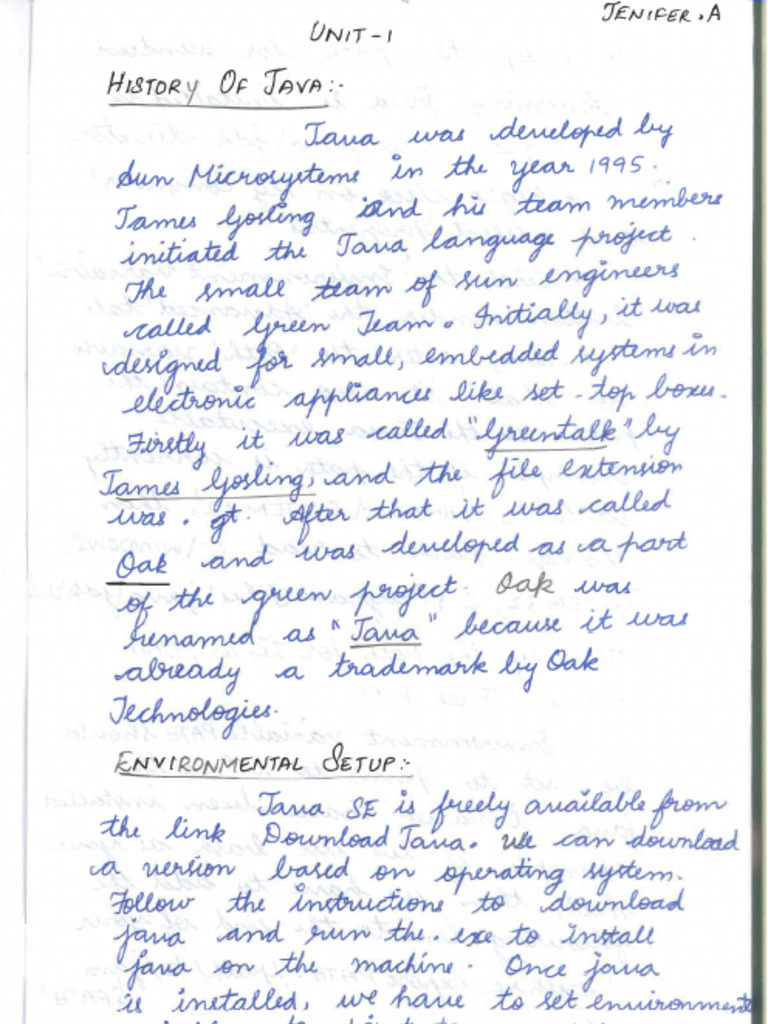 JENIFER.A
UNIT-1
HISTORY OF JAVA:-
Java was developed by
Sun Microsystems in the year 1995.
James Gosling and his team members
initiated the Java language project.
The small team of sun engineers
called Green Team. Initially, it was
designed for small, embedded systems in
electronic appliances like set-top boxes.
Firstly it was called "Greentalk" by
James Gosling, and the file extension
was .gt. After that it was called
Oak and was developed as a part
of the green project. Oak was
renamed as "Java" because it was
already a trademark by Oak
Technologies.
ENVIRONMENTAL SETUP:-
Java SE is freely available from
the link Download Java. We can download
a version based on operating system.
Follow the instructions to download
java and run the .exe to install
java on the machine. Once java
is installed, we have to set environment